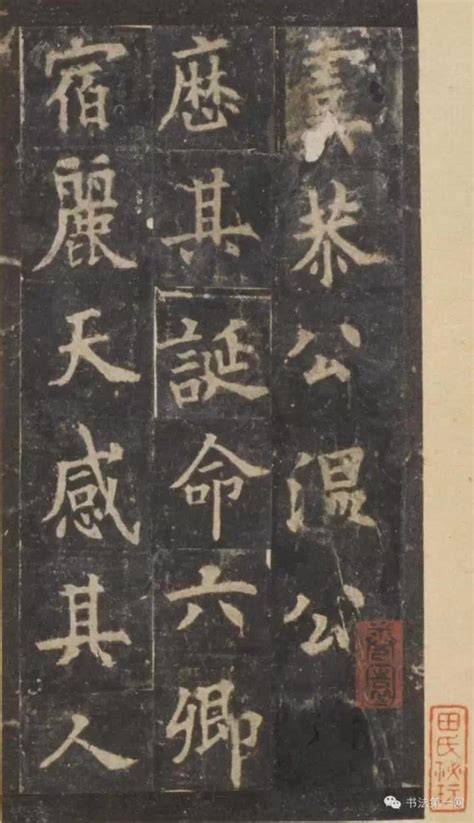 虞恭公温公
歴其誕命六卿
宿麗天感其人
田氏
书法第一网